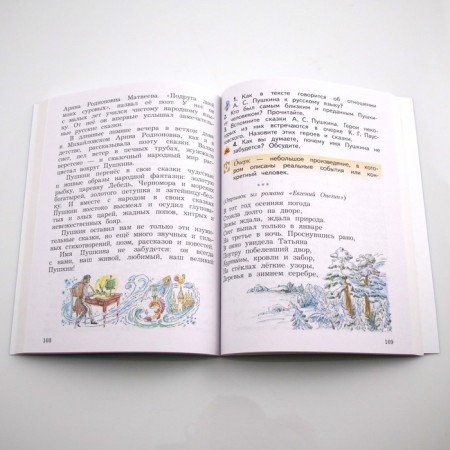 Арина Родионовна Матвеева. «Подруга дней
моих суровых», назвал её поэт. У неё он
с малых лет учился чистому народному языку.
От неё он впервые услышал замечатель-
ные русские сказки.
В длинные зимние вечера в ветхом доме
в Михайловском Арина Родионовна, как и в
детстве, рассказывала поэту сказки. Выла
вьюга, пел ветер в печных трубах, жужжало
веретено — и сказочный народный мир рас-
цветал вокруг Пушкина.
Пушкин перенёс в свои сказки чудесные
образы народной фантазии: золотую
рыбку, царевну Лебедь, Черномора и морских
богатырей, золотого петушка и затейницу-бел-
ку. И вместе с народом в своих сказках
Пушкин жестоко высмеял и осудил глупых
и злых царей, жадных попов, хитрых и
невежественных бояр.
Пушкин оставил нам не только эти изуми-
тельные сказки, но ещё много звучных и силь-
ных стихотворений, поэм, рассказов и повестей.
Имя Пушкина не забудется: он всегда
с нами, наш живой, любимый, наш великий
Пушкин!
108
1. Как в тексте говорится об отношении
А. С. Пушкина к русскому языку?
Кто был самым близким и преданным Пушки-
ну человеком? Прочитайте.
Вспомните сказки А. С. Пушкина. Герои неко-
торых из них встречаются в очерке К. Г. Паус-
товского. Назовите этих героев и сказки.
4. Как вы думаете, почему имя Пушкина не
забудется? Обсудите.
Очерк — небольшое произведение, в кото-
ром описаны реальные события или кон-
кретный человек.
* * *
(Отрывок из романа «Евгений Онегин»)
В тот год осенняя погода
Стояла долго на дворе,
Зимы ждала, ждала природа.
Снег выпал только в январе
На третье в ночь. Проснувшись рано,
В окно увидела Татьяна
Поутру побелевший двор,
Куртины, кровли и забор,
На стёклах лёгкие узоры,
Деревья в зимнем серебре,
109